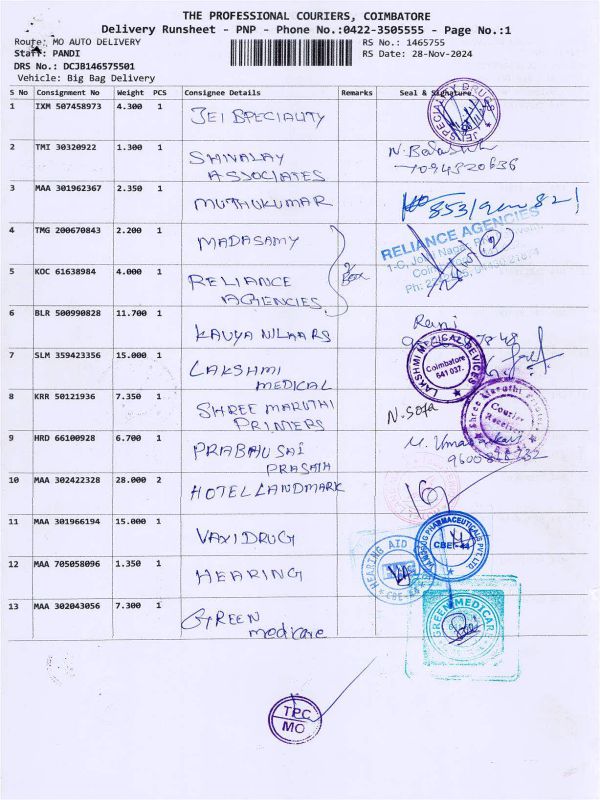 THE PROFESSIONAL COURIERS, COIMBATORE
Delivery Runsheet - PNP - Phone No.:0422-3505555 - Page No.:1
Route: MO AUTO DELIVERY RS No.: 1465755
Staff: PANDI RS Date: 28-Nov-2024
DRS No.: DCJB146575501
Vehicle: Big Bag Delivery
S No Consignment No Weight PCS Consignee Details Remarks Seal & Signature
1 IXM 507458973 4.300 1 JEI SPECIALITY
JEI SPECIALITY DRUGS
2 TMI 30320922 1.300 1 SHIVALAY
ASSOCIATES
3 MAA 301962367 2.350 1 MUTHUKUMAR
4 TMG 200670843 2.200 1 MADASAMY
RELIANCE AGENCIES
5 KOC 61638984 4.000 1 RELIANCE
AGENCIES
2 Box
6 BLR 500990828 11.700 1 KAVYA NILAARS
7 SLM 359423356 15.000 1 LAKSHMI
MEDICAL
LAKSHMI MEDICAL DEVICES
Coimbatore
641 037.
8 KRR 50121936 7.350 1 SHREE MARUTHI
PRINTERS
N. Sofa
Courier
Received
9 HRD 66100928 6.700 1 PRABHU SAI
PRASATH
10 MAA 302422328 28.000 2 HOTEL LANDMARK
11 MAA 301966194 15.000 1 VAXI DRUG
PHARMACEUTICALS PVT LTD.
CBE-44
12 MAA 705058096 1.350 1 HEARING
HEARING AID
CBE-44
13 MAA 302043056 7.300 1 GREEN
medicare
GREEN MEDICARE
TPC
MO